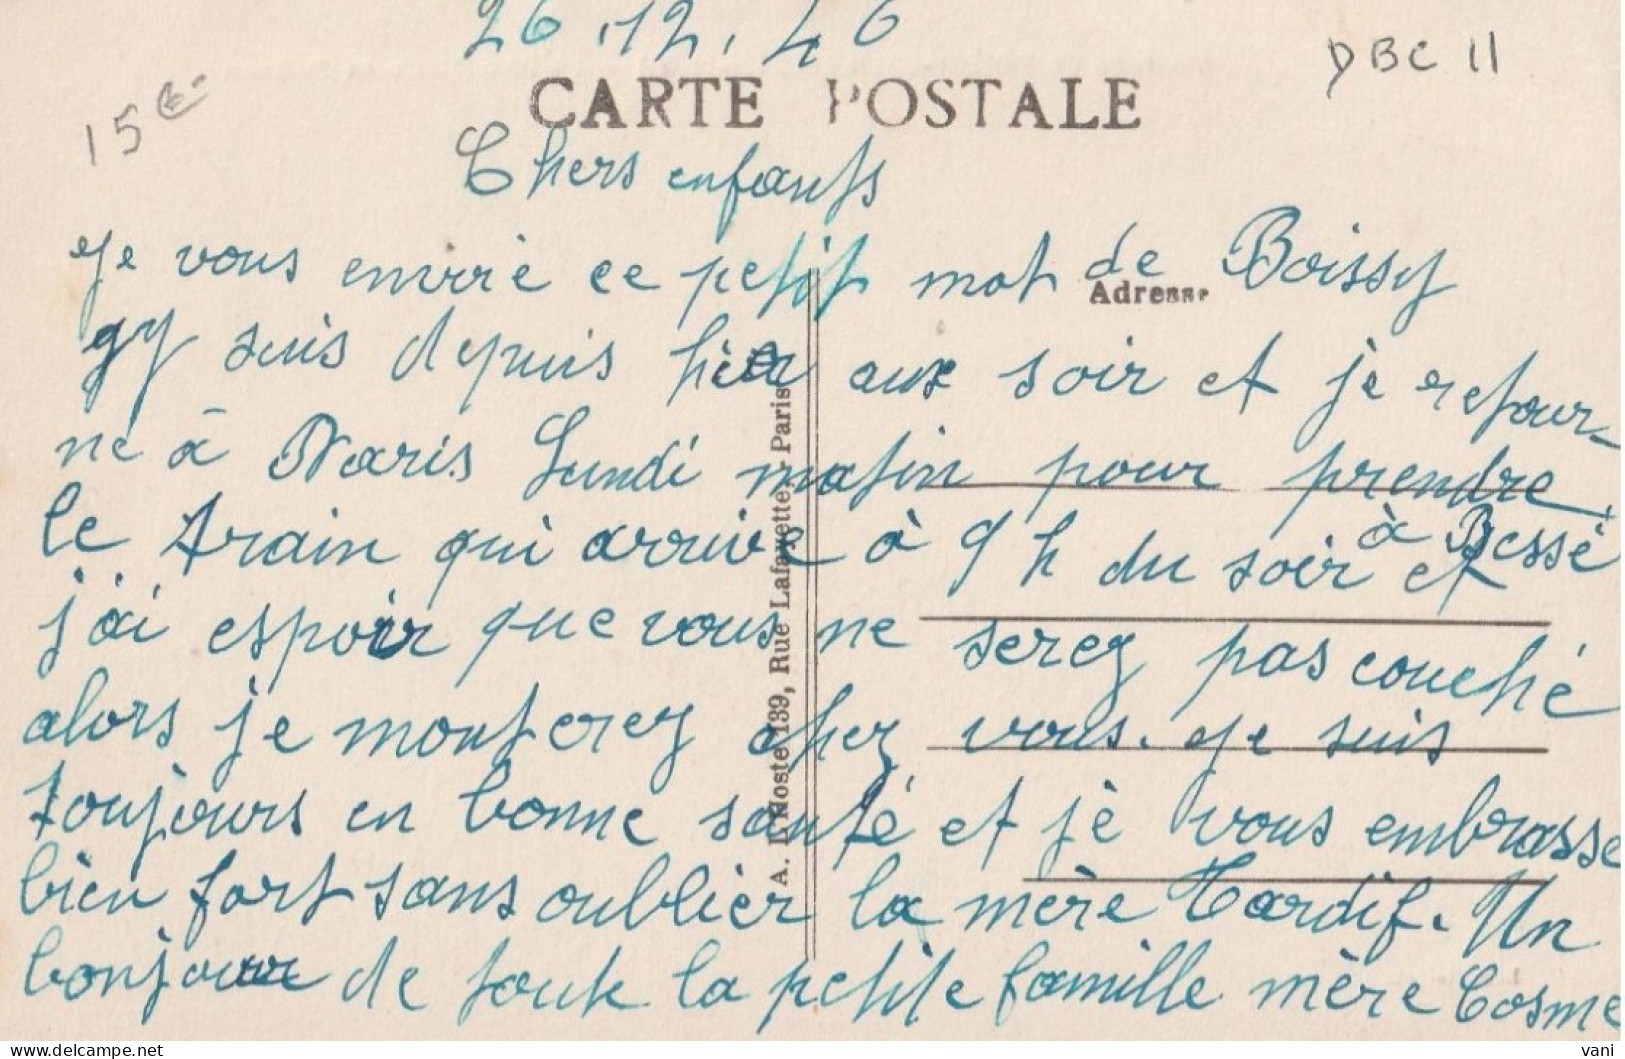 26.12.46
DBC 11
15€
CARTE POSTALE
Chers enfants
Je vous envoie ce petit mot de Boissy
Adresse
gy suis depuis hier aux soir et je retour-
né à Paris Lundi matin pour prendre
le train qui arrive à 9 h du soir à Bessé et
j'ai espoir que vous ne serez pas couché
alors je monterez chez vous. Je suis
toujours en bonne santé et je vous embrasse
bien fort sans oublier la mère Tardif. Un
bonjour de toute la petite famille mère Cosme
A. L'Hoste 139, Rue Lafayette, Paris
delcampe.net
vani